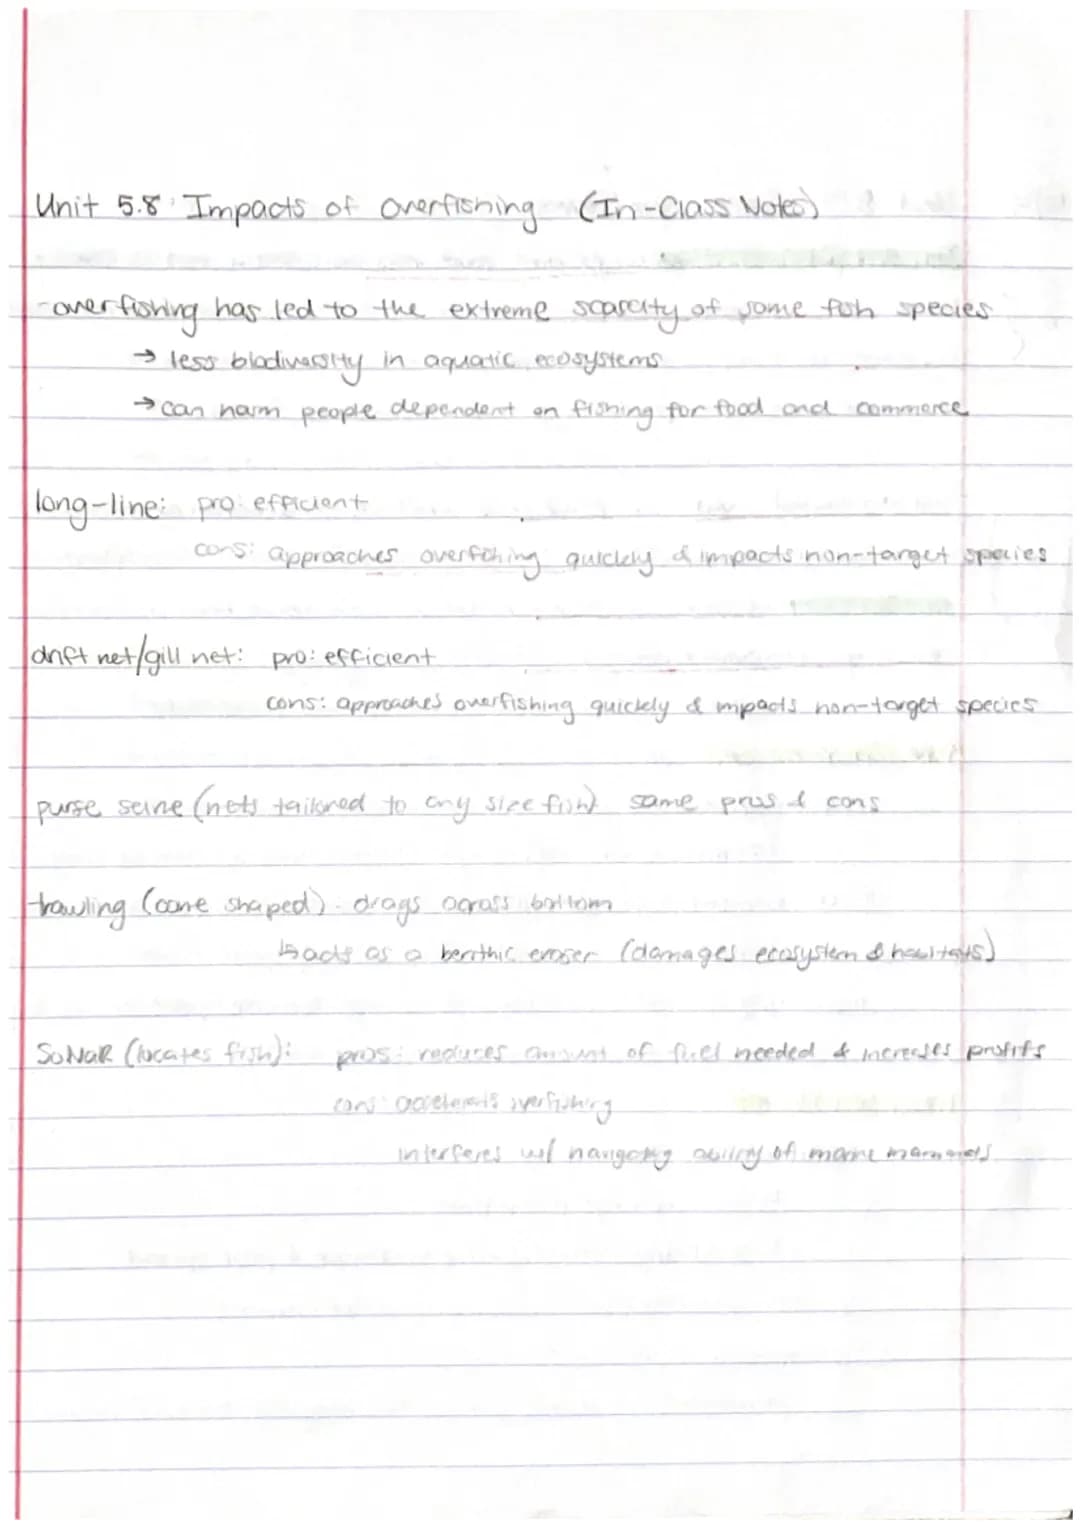 Unit 5.8: Impacts of overfishing (In-Class Notes)
-overfishing has led to the extreme scarcity of some fish species
→ less biodiversity in aquatic ecosystems
→ can harm people dependent on fishing for food and commerce
long-line: pro: efficient
cons: approaches overfishing quickly & impacts non-target species
drift net/gill net: pro: efficient
cons: approaches overfishing quickly & impacts non-target species
purse seine (nets tailored to any size fish) same pros & cons
trawling (cone shaped): drags across bottom
↳ acts as a benthic eraser (damages ecosystem & habitats)
SoNaR (locates fish): pros: reduces amount of fuel needed & increases profits
cons: accelerates overfishing
interferes w/ navigating ability of marine mammals